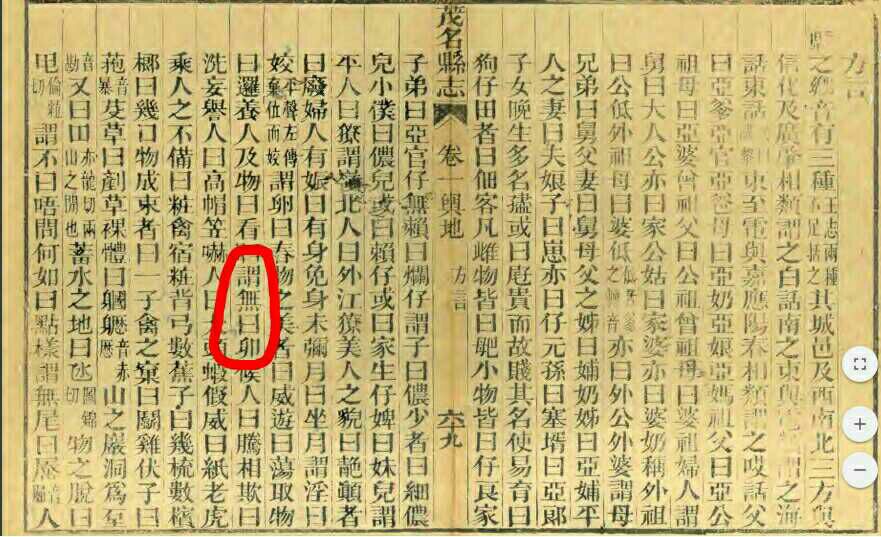 方言
縣之鄉音有三種王志兩種不足括之其城邑及西南北三方與
信化及廣肇相類謂之白話南之東與電謂之海
話東話東至電與嘉應陽春相類謂之哎話父
曰亞爹亞官亞爸母曰亞奶亞娘亞媽祖父曰亞公
祖母曰亞婆曾祖父曰公祖曾祖母曰婆祖婦人謂
舅曰大人公亦曰家公姑曰家婆亦曰婆奶稱外祖
曰公低外祖母曰婆低低爹之轉音亦曰外公外婆謂母
兄弟曰舅父妻曰舅母父之姊曰姑奶姊曰亞姑平
人之妻曰夫娘子曰崽亦曰仔元孫曰塞壻曰亞郎
子女晚生多名孻或曰屘貴而故賤其名使易育曰
狗仔田者曰佃客凡雌物皆曰小物皆曰仔良家
茂名縣志 卷一輿地 方言 六十九
子弟曰亞官仔無賴曰爛仔謂子曰儂少者曰細儂
兒小僕曰儂兒或曰賴仔或曰家生仔婢曰妹兒謂
平人曰獠謂嶺北人曰外江獠美人之貌曰靘顚者
曰廢婦人有娠曰有身免身未彌月曰坐月謂淫曰
姣平聲左傳棄位而姣謂卵曰春物之美者曰威遊曰蕩取物
曰邏養人及物曰看謂無曰卯候人曰騰相欺曰
洗妄譽人曰高帽笠嚇人曰大頭蝦假威曰紙老虎
乘人之不備曰禽宿背弓數蕉子曰幾梳數檳
榔曰幾口物成束者曰一子禽之窠曰鬬雞伏子曰
菢音暴芟草曰剷草裸體曰音赤山之巖洞爲
音勘又曰蓄水之地曰物之脫曰
切謂不曰唔問何如曰點樣謂無尾曰人